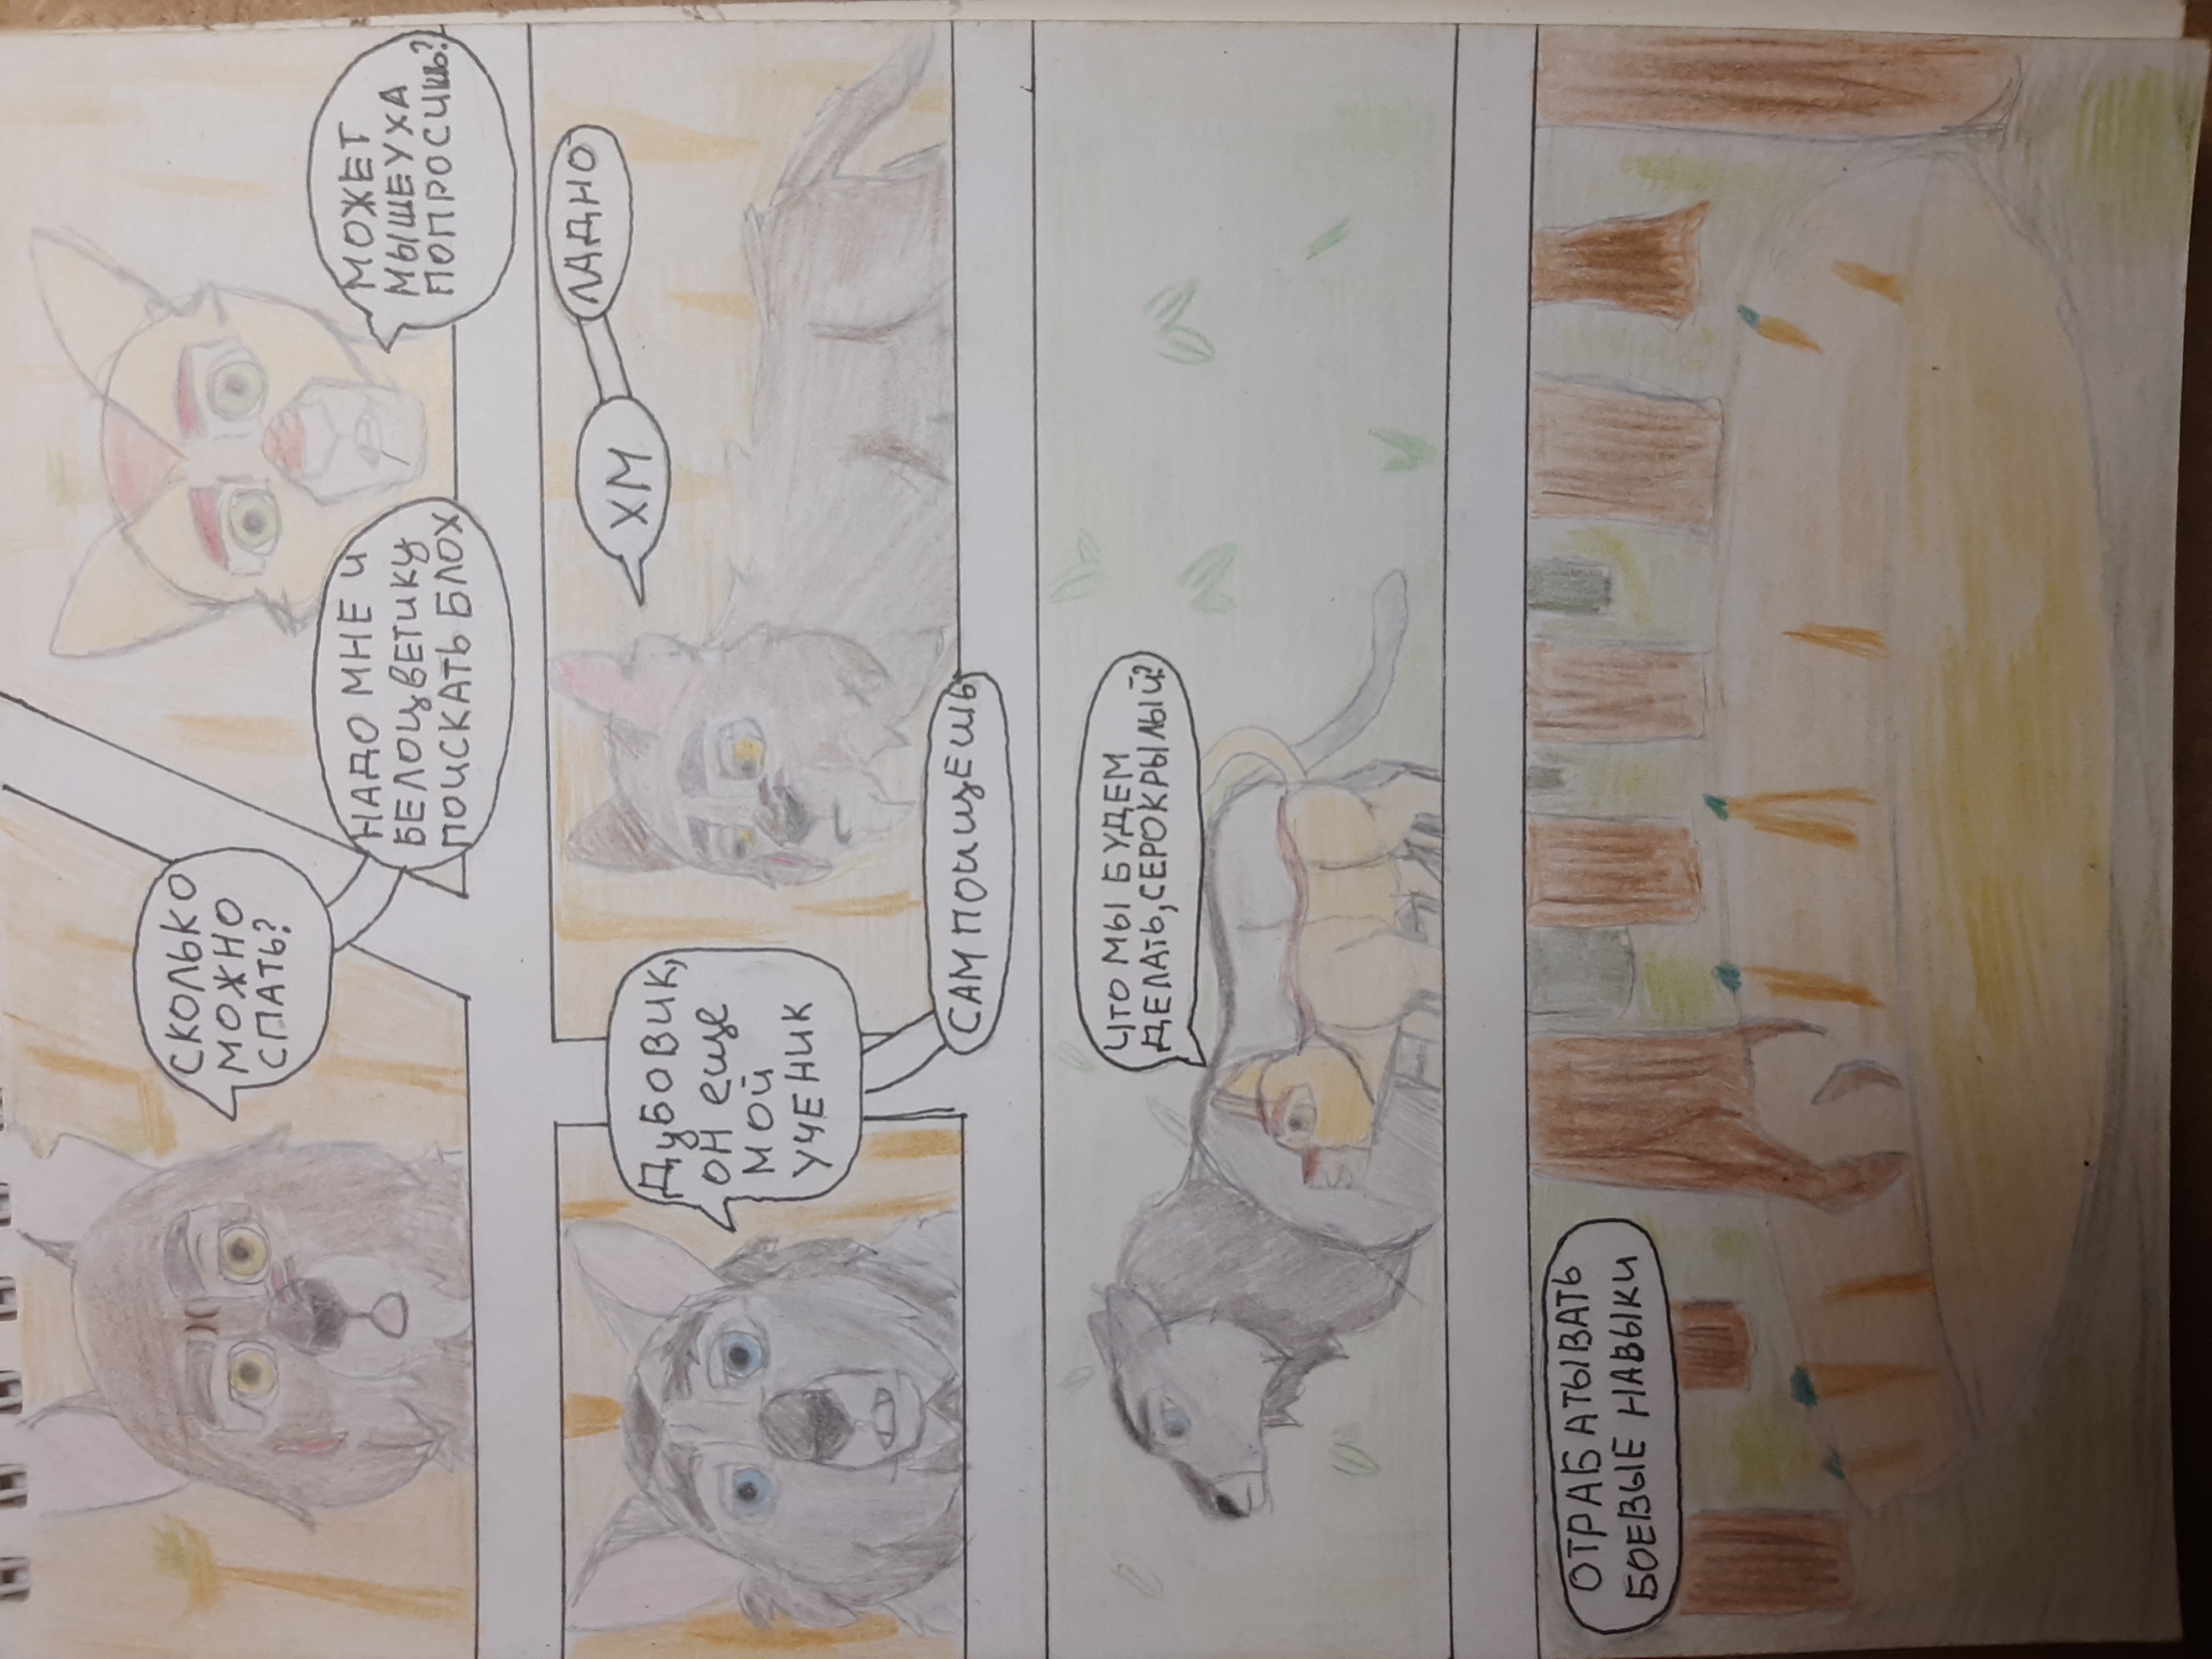 СКОЛЬКО
МОЖНО
СПАТЬ?
НАДО МНЕ И
БЕЛОЦВЕТИКУ
ПОИСКАТЬ БЛОХ
МОЖЕТ
МЫШЕУХА
ПОПРОСИШЬ?
ДУБОВИК,
ОН ЕЩЕ
МОЙ
УЧЕНИК
САМ ПОИЩЕШЬ
ХМ
ЛАДНО
ЧТО МЫ БУДЕМ
ДЕЛАТЬ, СЕРОКРЫЛЫЙ?
ОТРАБАТЫВАТЬ
БОЕВЫЕ НАВЫКИ